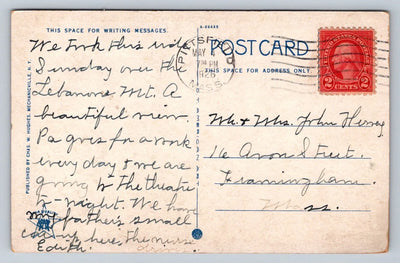 THIS SPACE FOR WRITING MESSAGES.
A-65835
POST CARD
THIS SPACE FOR ADDRESS ONLY.
PITTSFIELD
MAY
PM
MASS.
2 CENTS 2
We Took this ride
Sunday over the
Lebanon Mt. A
beautiful view.
Pa goes for a walk
every day & we are
going to the theatre
to-night. We have
my father's small
here, the nurse
Edith.
Mr & Mrs. John Hersey
16 Avon Street.
Framingham.
Mass.
PUBLISHED BY CHAS. W. HUGHES, MECHANICVILLE, N.Y.